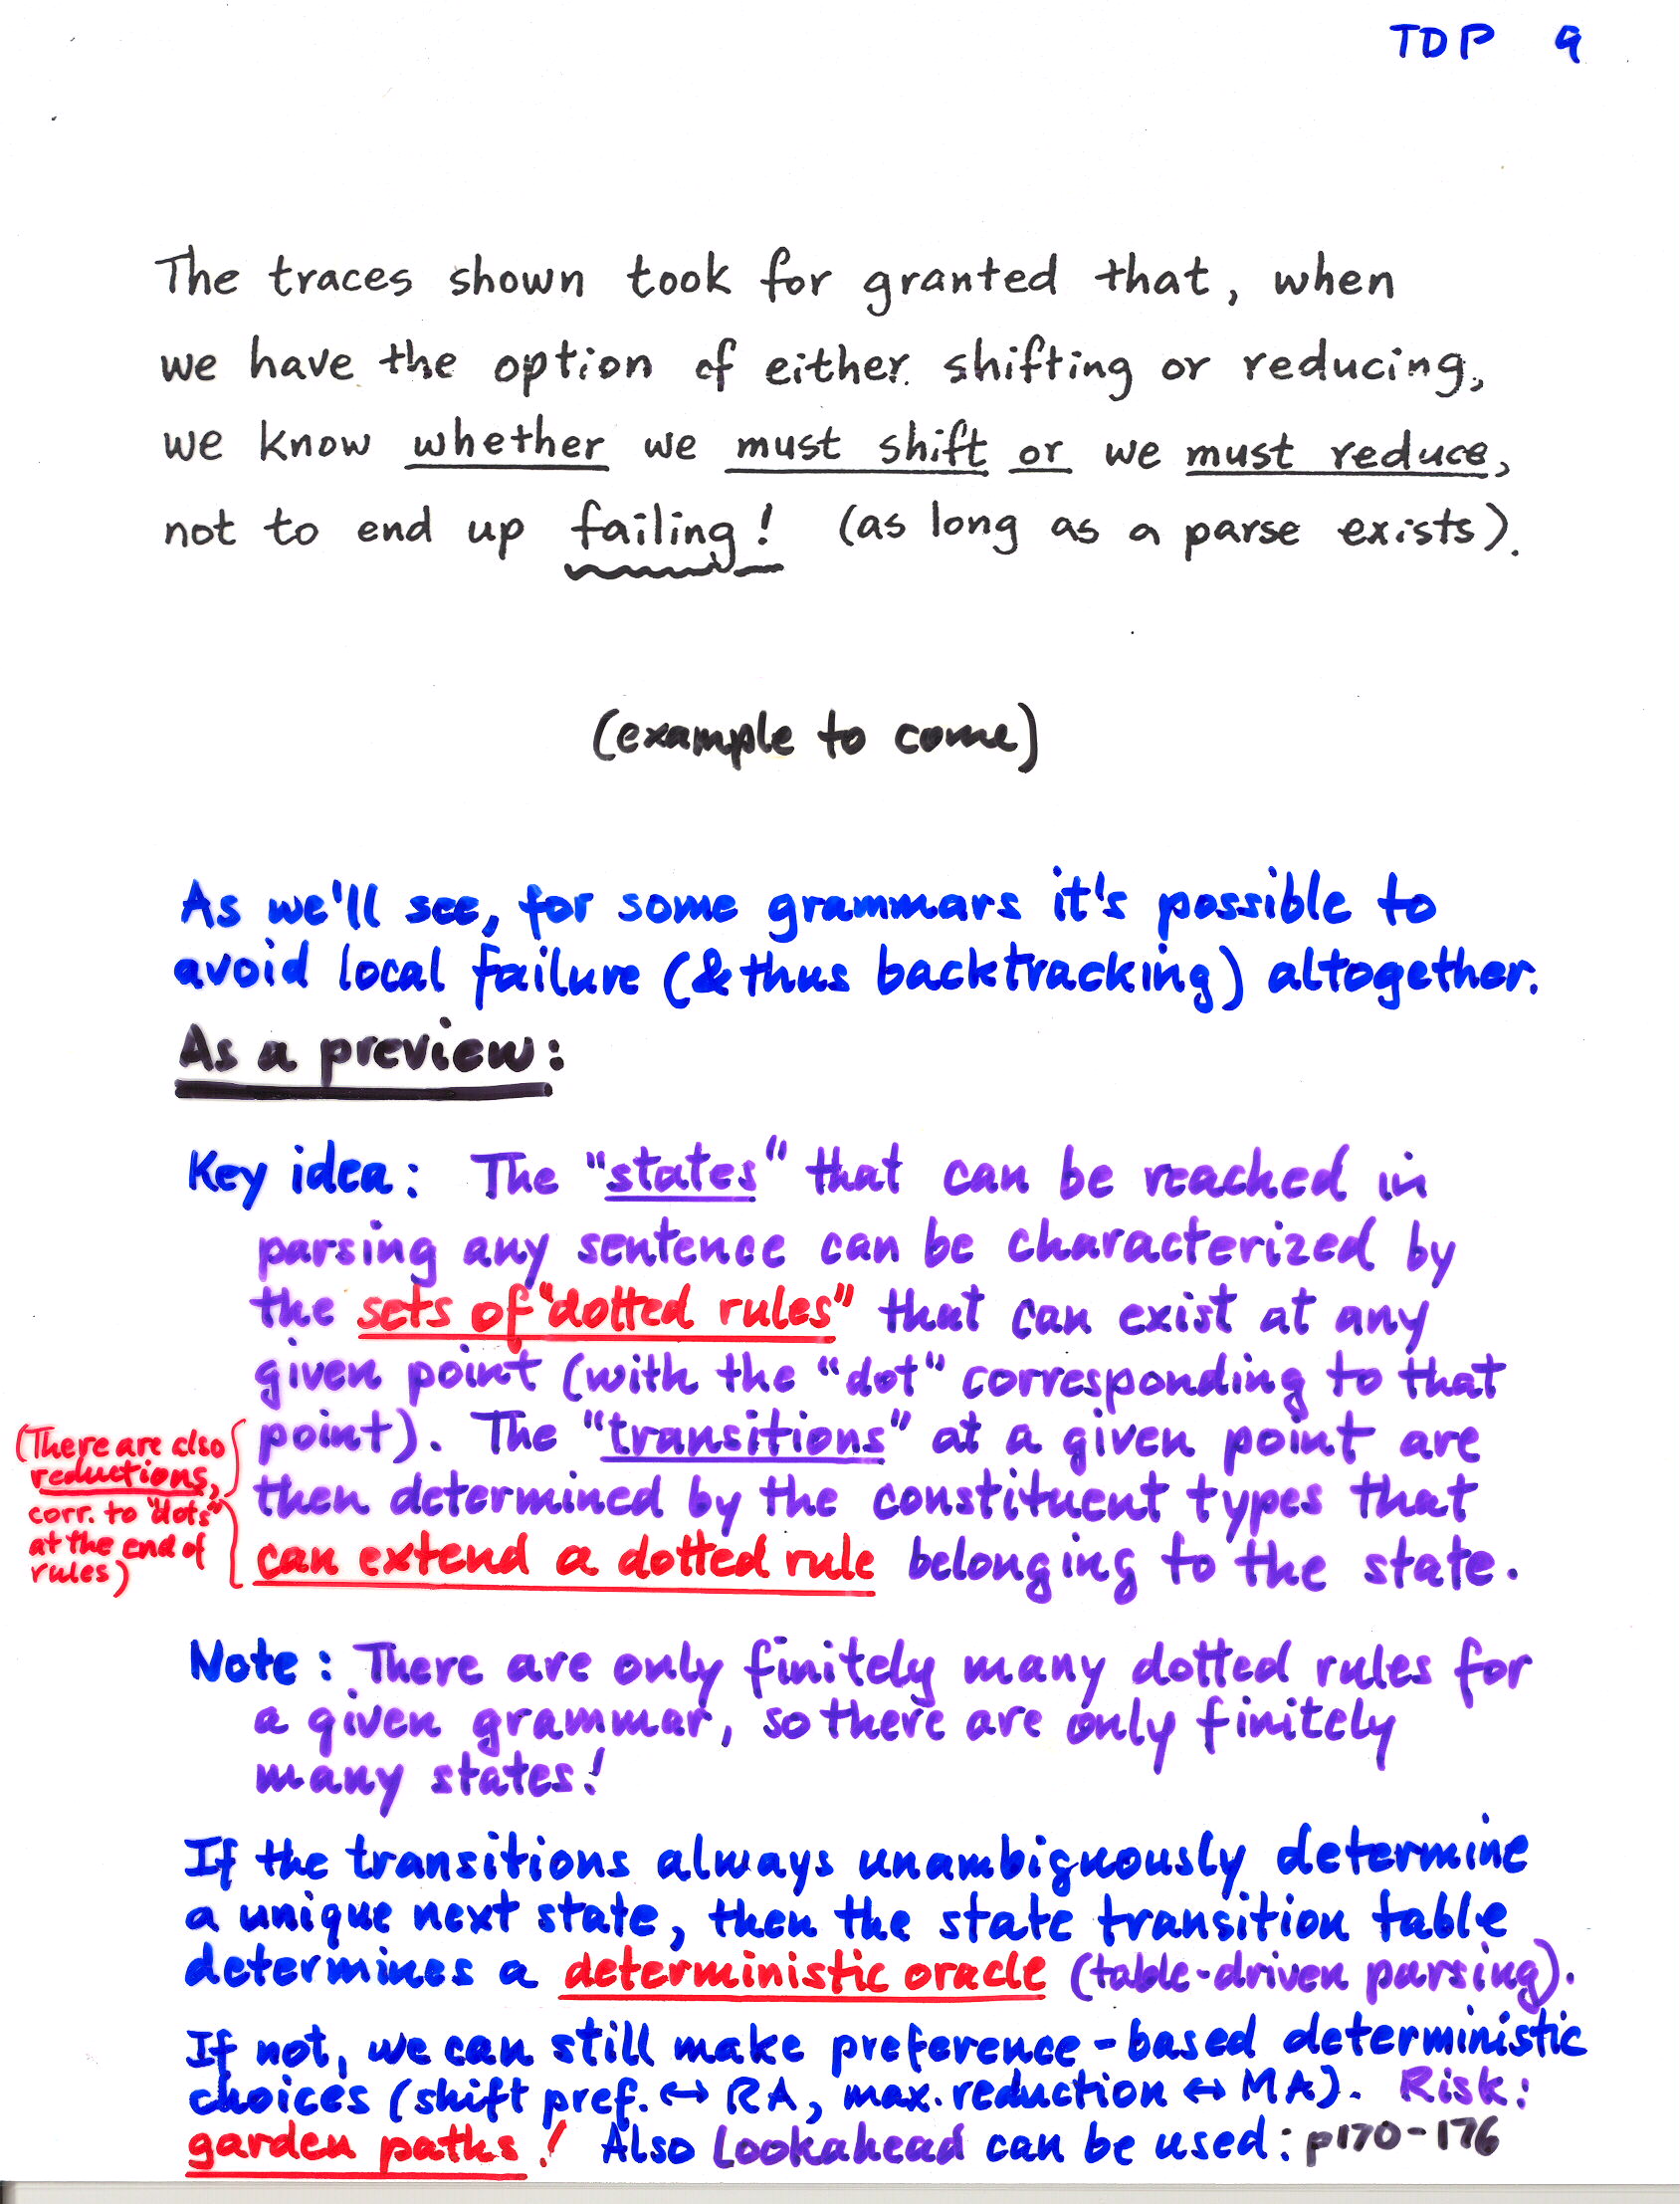 TDP 9
The traces shown took for granted that, when
we have the option of either shifting or reducing,
we know whether we must shift or we must reduce,
not to end up failing! (as long as a parse exists).
(example to come)
As we'll see, for some grammars it's possible to
avoid local failure (& thus backtracking) altogether.
As a preview:
Key idea: The "states" that can be reached in
parsing any sentence can be characterized by
the sets of "dotted rules" that can exist at any
given point (with the "dot" corresponding to that
point). The "transitions" at a given point are
then determined by the constituent types that
can extend a dotted rule belonging to the state.
(There are also
reductions,
corr. to "dots"
at the end of
rules)
Note: There are only finitely many dotted rules for
a given grammar, so there are only finitely
many states!
If the transitions always unambiguously determine
a unique next state, then the state transition table
determines a deterministic oracle (table-driven parsing).
If not, we can still make preference-based deterministic
choices (shift pref. ↔ RA, max. reduction ↔ MA). Risk:
garden paths! Also Lookahead can be used: p170-176